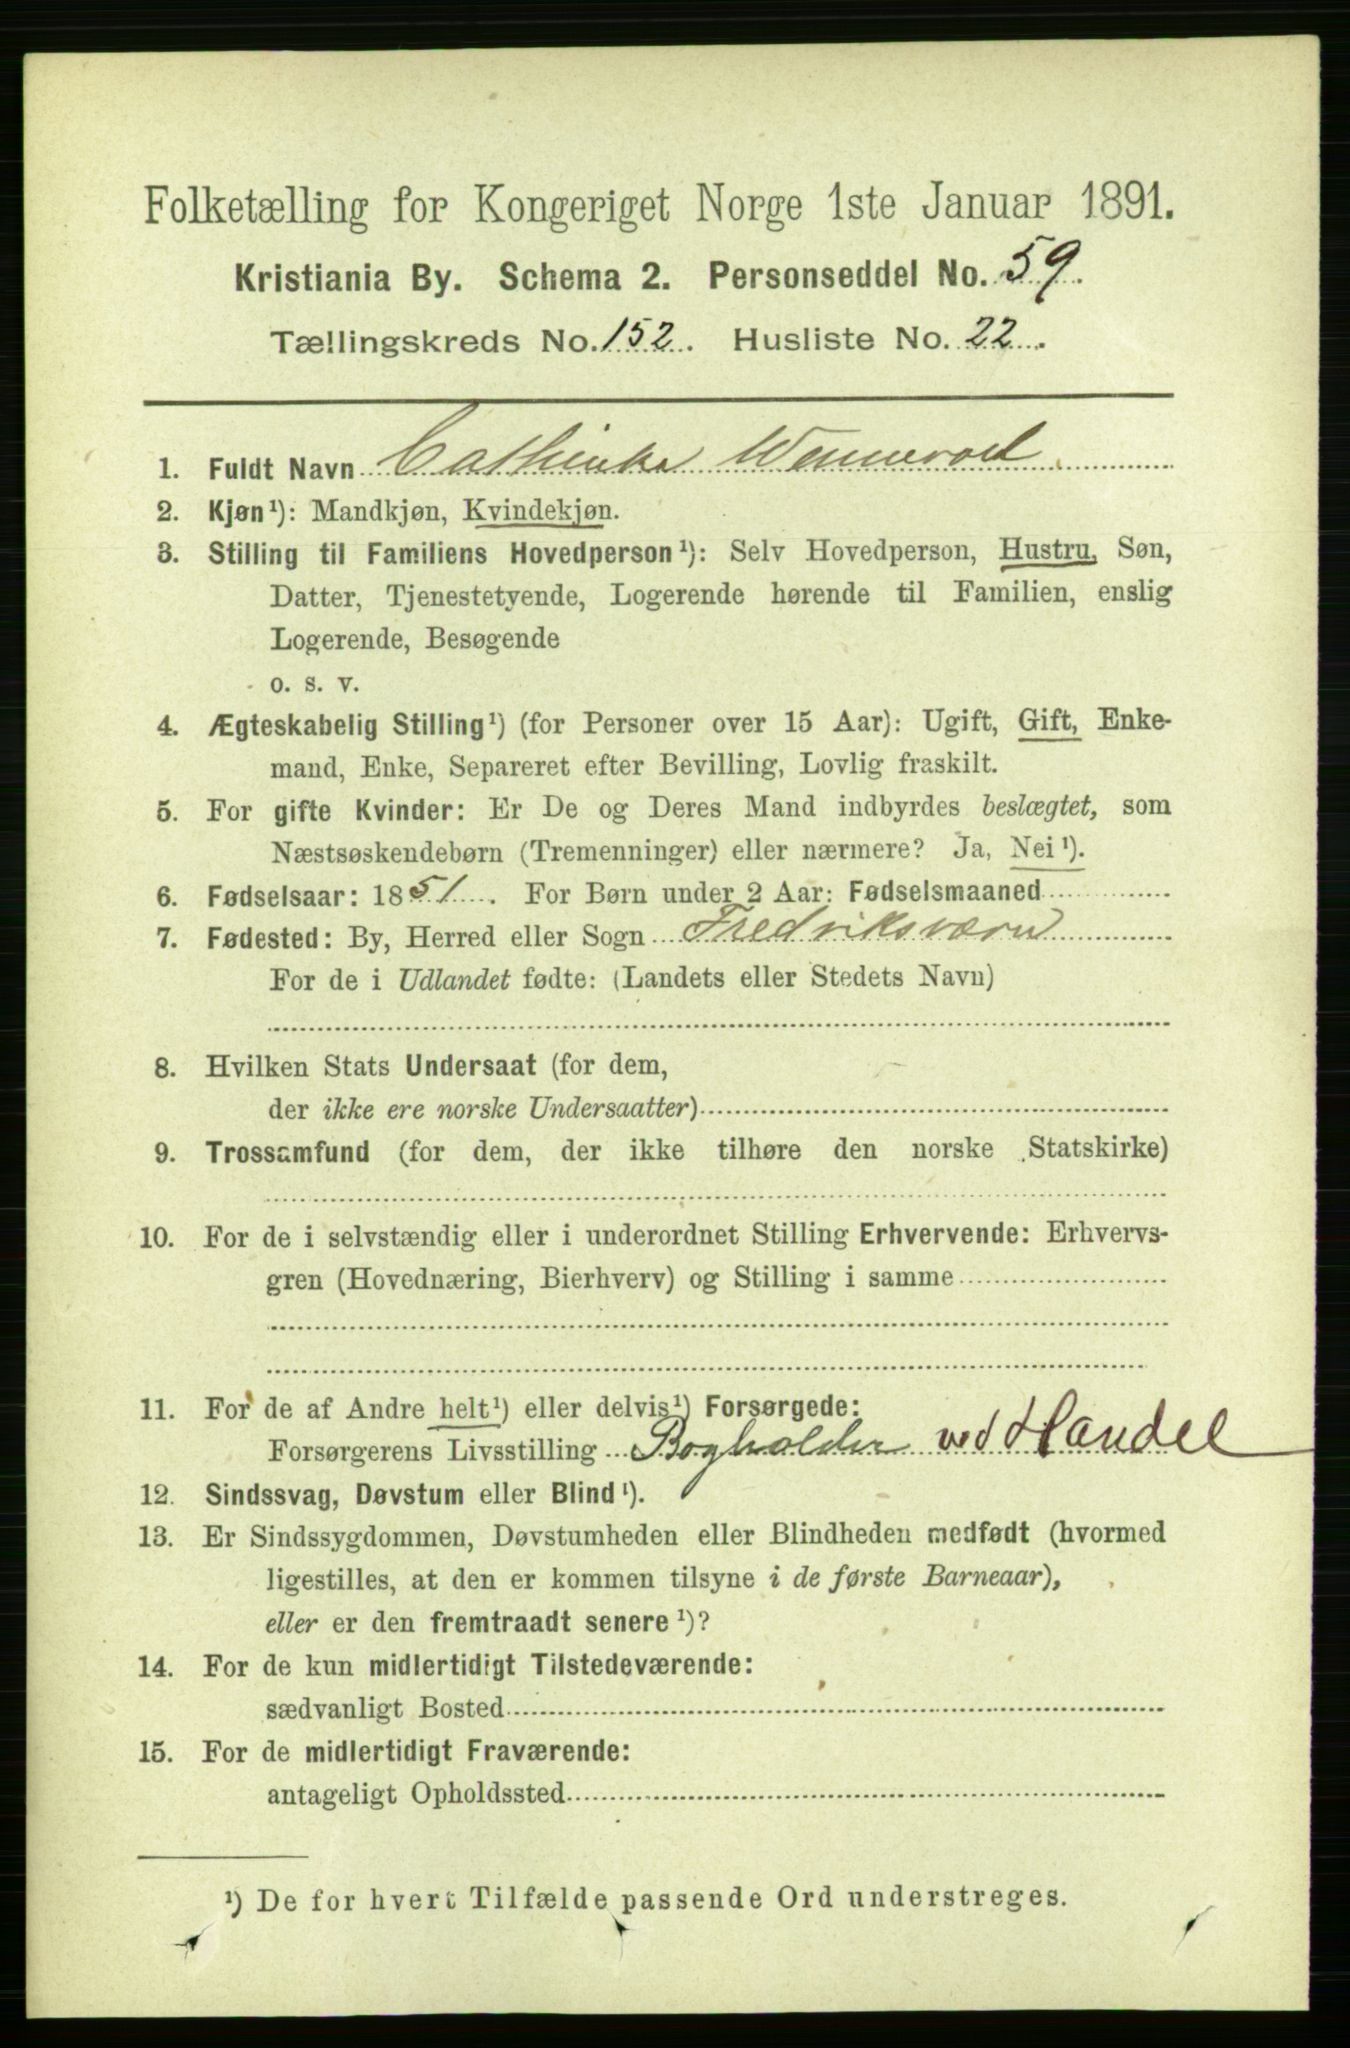 Folketælling for Kongeriget Norge 1ste Januar 1891.
Kristiania By. Schema 2. Personseddel No. 59.
Tællingskreds No. 152. Husliste No. 22.
1. Fuldt Navn Cathinka Wennevold
2. Kjøn¹): Mandkjøn, Kvindekjøn.
3. Stilling til Familiens Hovedperson¹): Selv Hovedperson, Hustru, Søn,
Datter, Tjenestetyende, Logerende hørende til Familien, enslig
Logerende, Besøgende
o. s. v.
4. Ægteskabelig Stilling¹) (for Personer over 15 Aar): Ugift, Gift, Enke-
mand, Enke, Separeret efter Bevilling, Lovlig fraskilt.
5. For gifte Kvinder: Er De og Deres Mand indbyrdes beslægtet, som
Næstsøskendebørn (Tremenninger) eller nærmere? Ja, Nei¹).
6. Fødselsaar: 1851. For Børn under 2 Aar: Fødselsmaaned
7. Fødested: By, Herred eller Sogn Fredriksværn
For de i Udlandet fødte: (Landets eller Stedets Navn)
8. Hvilken Stats Undersaat (for dem,
der ikke ere norske Undersaatter)
9. Trossamfund (for dem, der ikke tilhøre den norske Statskirke)
10. For de i selvstændig eller i underordnet Stilling Erhvervende: Erhvervs-
gren (Hovednæring, Bierhverv) og Stilling i samme
11. For de af Andre helt¹) eller delvis¹) Forsørgede:
Forsørgerens Livsstilling Bogholder ved Handel
12. Sindssvag, Døvstum eller Blind¹).
13. Er Sindssygdommen, Døvstumheden eller Blindheden medfødt (hvormed
ligestilles, at den er kommen tilsyne i de første Barneaar),
eller er den fremtraadt senere¹)?
14. For de kun midlertidigt Tilstedeværende:
sædvanligt Bosted
15. For de midlertidigt Fraværende:
antageligt Opholdssted
¹) De for hvert Tilfælde passende Ord understreges.